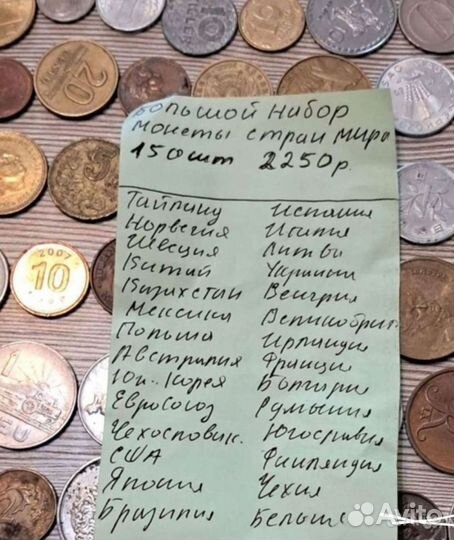 Большой набор
монеты стран мира
150шт 2250р.
Тайланд
Норвегия
Швеция
Китай
Казахстан
Мексика
Польша
Австралия
Юж. Корея
Евросоюз
Чехословак.
США
Япония
Бразилия
Испания
Италия
Литва
Украина
Венгрия
Великобрит.
Ирландия
Франция
Болгария
Румыния
Югославия
Финляндия
Чехия
Бельг
20
5
2007
10
1
2
Avito